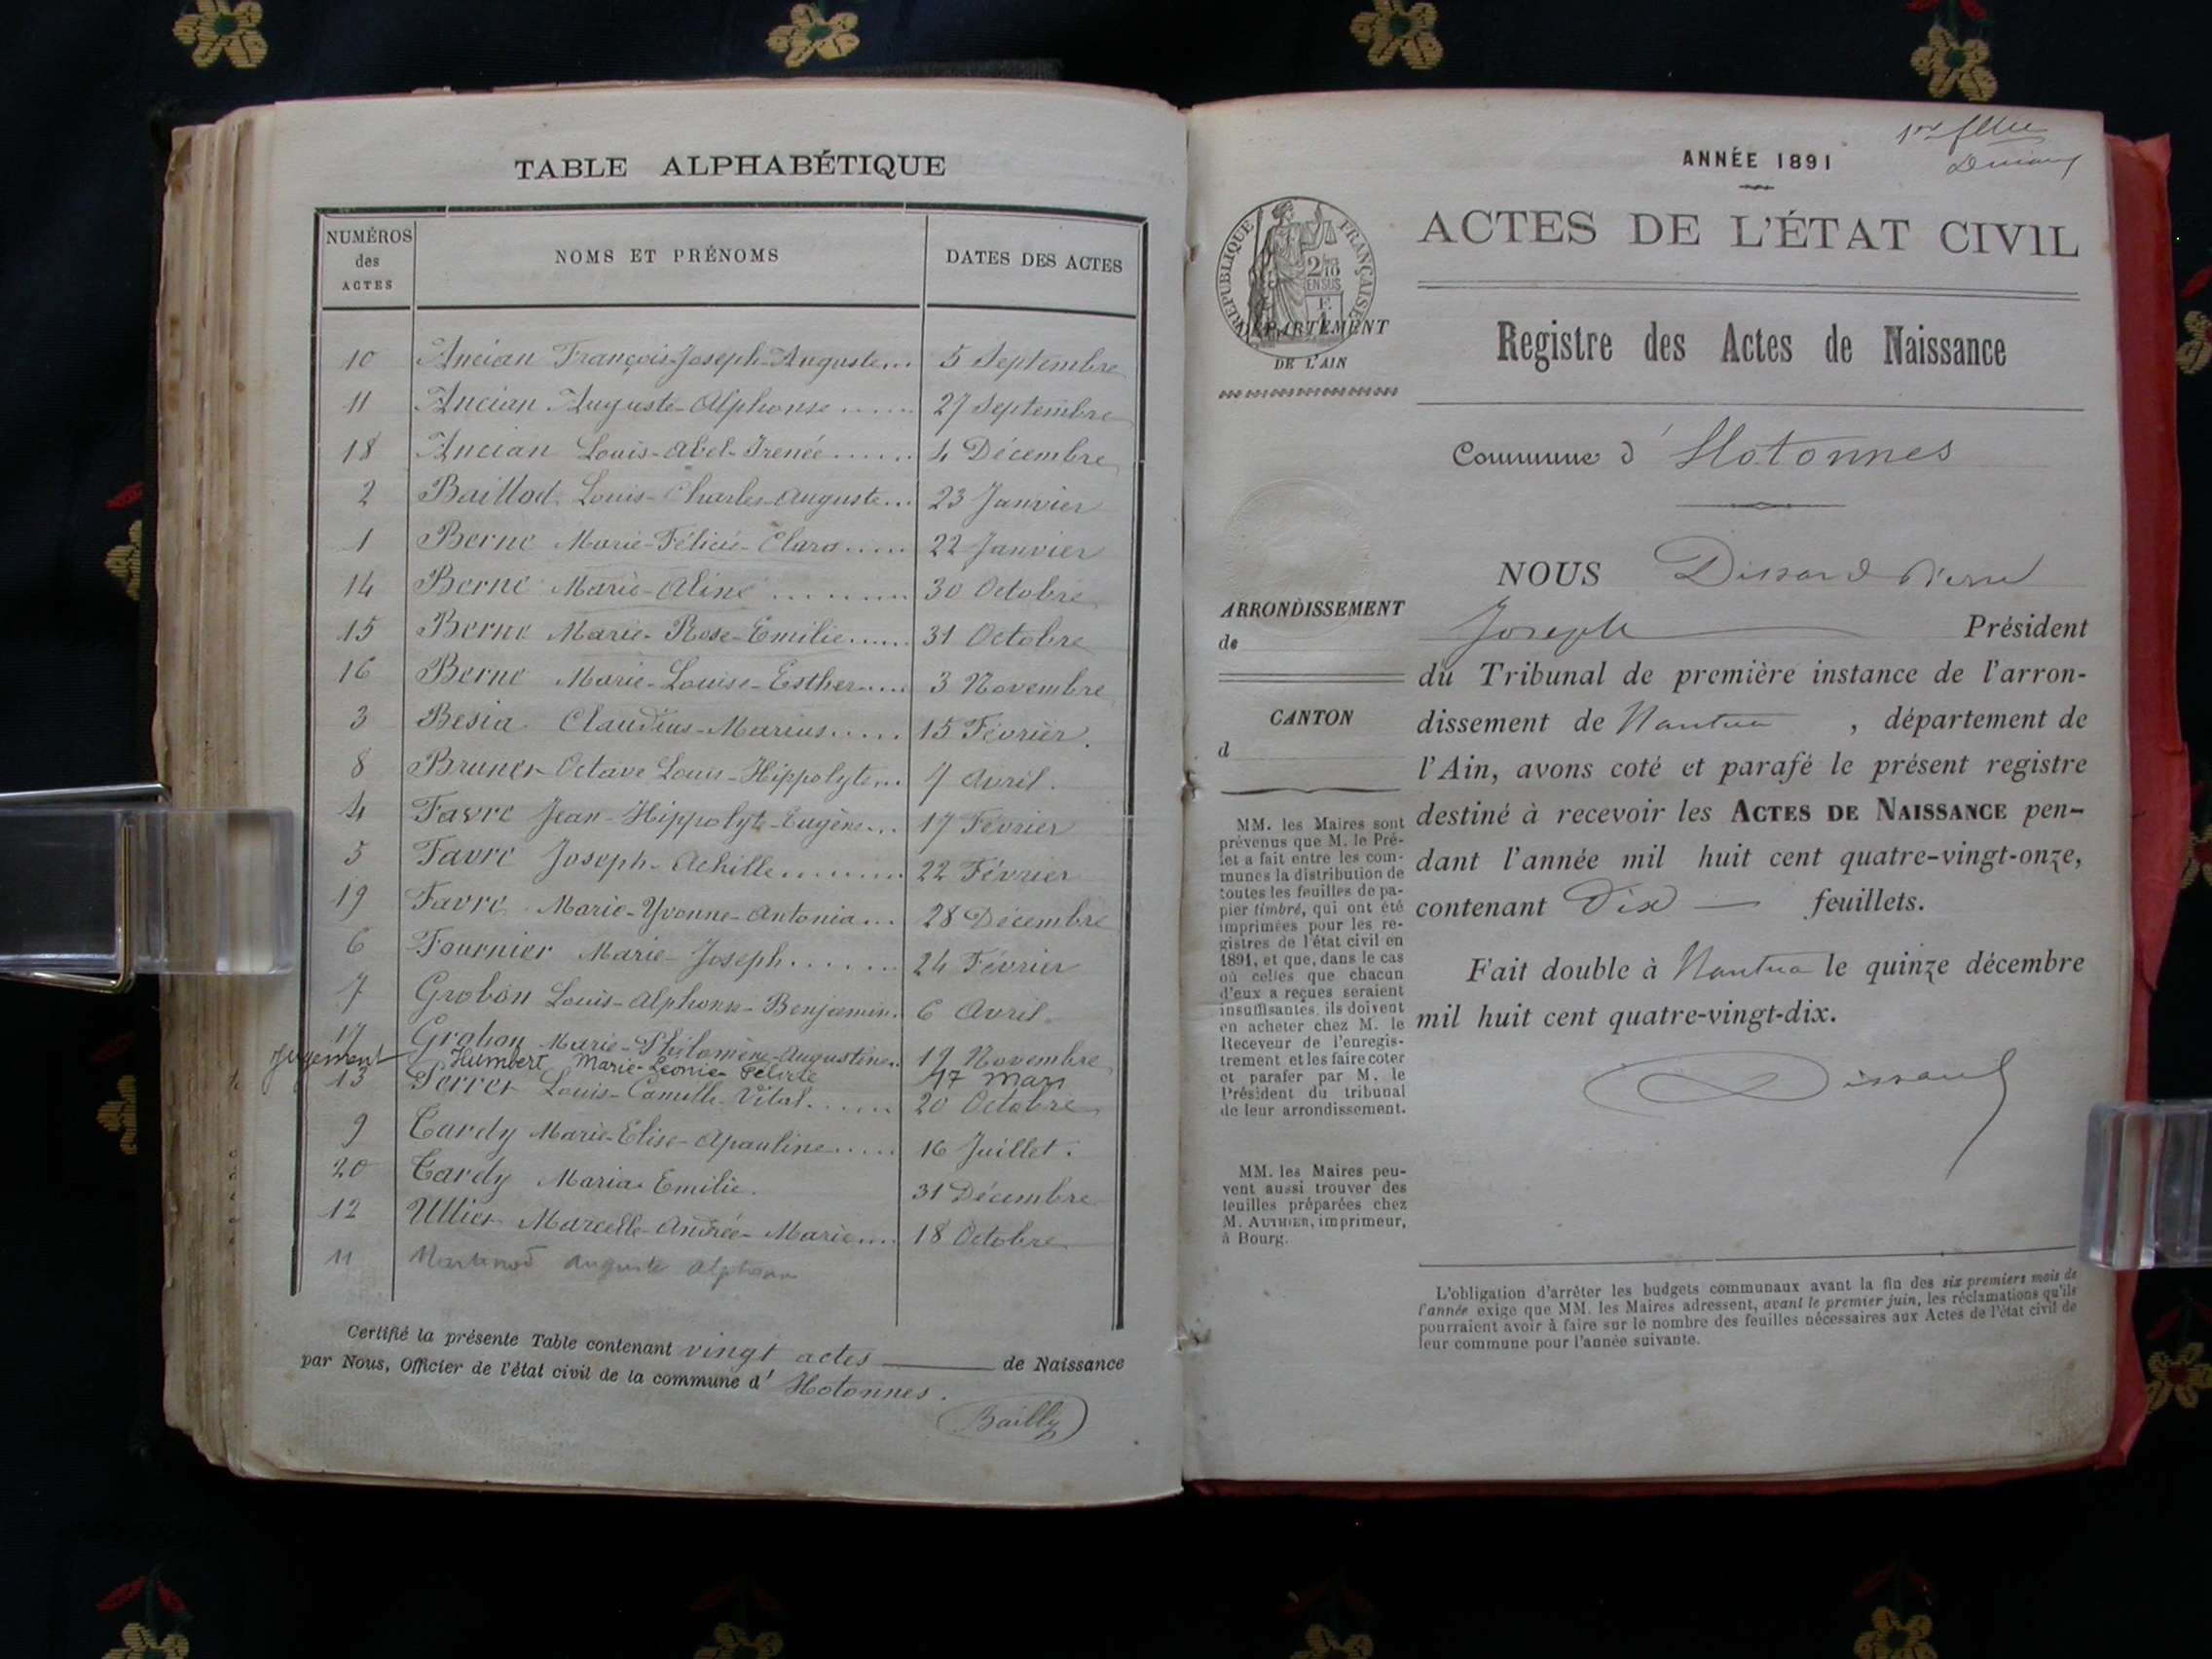 TABLE ALPHABÉTIQUE
NUMÉROS des ACTES
NOMS ET PRÉNOMS
DATES DES ACTES
10 Ancian François-Joseph-Auguste... 5 Septembre
11 Ancian Auguste-Alphonse ...... 27 Septembre
18 Ancian Louis-Abel-Irenée ...... 4 Décembre
2 Baillod Louis-Charles-Auguste... 23 Janvier
1 Berne Marie-Félicie-Clara..... 22 Janvier
14 Berne Marie-Aline ......... 30 Octobre
15 Berne Marie-Rose-Emilie...... 31 Octobre
16 Berne Marie-Louise-Esther.... 3 Novembre
3 Besia Claudius-Marius..... 15 Février.
8 Brunet Octave Louis-Hippolyte... 7 Avril.
4 Favre Jean-Hippolyte-Eugène... 17 Février
5 Favre Joseph-Achille........ 22 Février
19 Favre Marie-Yvonne-Antonia... 28 Décembre
6 Fournier Marie-Joseph....... 24 Février
7 Grobon Louis-Alphonse-Benjamin. 6 Avril.
17 Grobon Marie-Philomène-Augustine.. 19 Novembre
Jugement Humbert Marie-Léonie Félicie 17 mars
13 Perret Louis-Camille-Vital...... 20 Octobre
9 Tardy Marie-Elise-Apauline..... 16 Juillet.
20 Tardy Maria Emilie. 31 Décembre
12 Ulliet Marcelle-Andrée-Marie.... 18 Octobre
11 Martinod Auguste Alphonse
Certifié la présente Table contenant vingt actes de Naissance
par Nous, Officier de l'état civil de la commune d' Hotonnes.
Bailly
1er
ANNÉE 1891
ACTES DE L'ÉTAT CIVIL
RÉPUBLIQUE FRANÇAISE
2/10
EN SUS
DÉPARTEMENT
DE L'AIN
Registre des Actes de Naissance
Commune d' Hotonnes
NOUS Dissard Pierre
Joseph Président
du Tribunal de première instance de l'arron-
dissement de Nantua, département de
l'Ain, avons coté et parafé le présent registre
destiné à recevoir les ACTES DE NAISSANCE pen-
dant l'année mil huit cent quatre-vingt-onze,
contenant Dix — feuillets.
Fait double à Nantua le quinze décembre
mil huit cent quatre-vingt-dix.
Dissard
ARRONDISSEMENT
de
CANTON
d
MM. les Maires sont
prévenus que M. le Pré-
fet a fait entre les com-
munes la distribution de
toutes les feuilles de pa-
pier timbré, qui ont été
imprimées pour les re-
gistres de l'état civil en
1891, et que, dans le cas
où celles que chacun
d'eux a reçues seraient
insuffisantes, ils doivent
en acheter chez M. le
Receveur de l'enregis-
trement et les faire coter
et parafer par M. le
Président du tribunal
de leur arrondissement.
MM. les Maires peu-
vent aussi trouver des
feuilles préparées chez
M. AUTHIER, imprimeur,
à Bourg.
L'obligation d'arrêter les budgets communaux avant la fin des six premiers mois de
l'année exige que MM. les Maires adressent, avant le premier juin, les réclamations qu'ils
pourraient avoir à faire sur le nombre des feuilles nécessaires aux Actes de l'état civil de
leur commune pour l'année suivante.